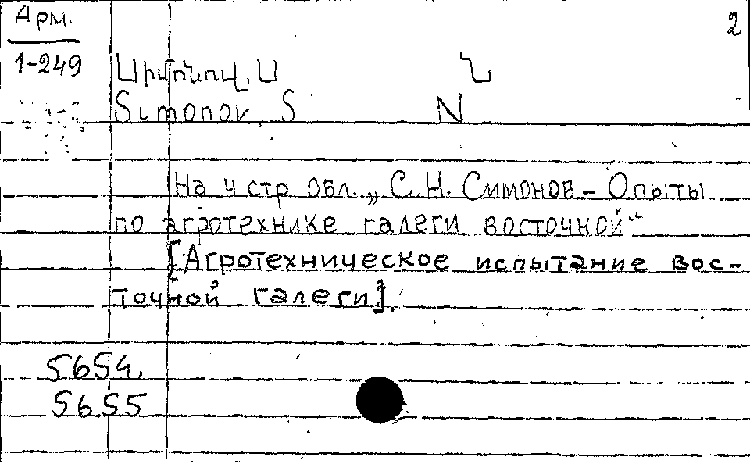 Арм.
2
1-249
Սիմոնով, Ս Ն
Simonov, S N
На 4 стр. обл. „С. Н. Симонов – Опыты
по агротехнике галеги восточной“
[Агротехническое испытание вос-
точной галеги].
5654
5655